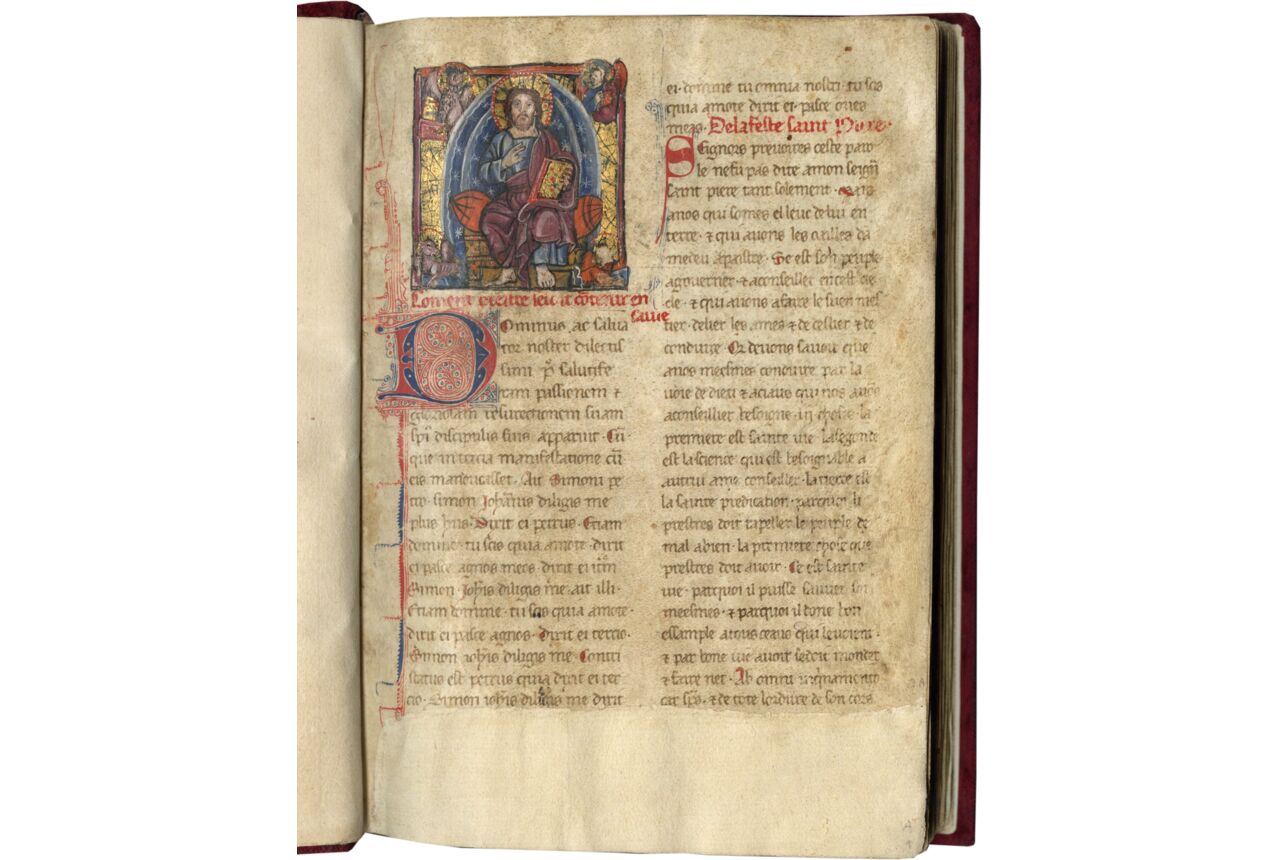 Dominus ac salua
tor noster dilectis
simi p̃ salutife
ram passionem ⁊
gloriosam resurrectionem suam
discipulis suis apparuit · Cũ
que in tercia manifestatione cũ
eis manducasset · Ait Simoni pe
tro · simon Johannis diligis me
plus hiis · Dixit ei petrus · Etiam
domine · tu scis quia amo te · dixit
ei pasce agnos meos dixit ei itm̃
Simon · Johis diligis me · ait illi ·
Etiam domine · tu scis quia amo te ·
dixit ei pasce agnos · Dixit ei tercio ·
Simon iohis diligis me · Contri
status est petrus quia dixit ei ter
cio · Simon iohis diligis me dixit
ei · domine tu omnia nosti · tu scis
quia amo te dixit ei · pasce oues
meas · De la feste saint Piere ·
Seignors prevoires ceste paro
le ne fu pas dite a mon seignr̃
saint piere tant solement · Mais
a nos qui somes el leuc de lui en
terre · ⁊ qui auons les oailles da
me deu a paistre · Ce est son peuple
a gouerner · ⁊ a conseiller en cest sie
cle · ⁊ qui auons a faire le suen mes
tier · delier les ames ⁊ de ⁊ de
conduire · Or deuons sauoir que
a nos meesmes conduire par la
uoie de dieu ⁊ a ciaus qui nos auõs
a conseillier besoigne · iii choses · la
premiere est sainte uie la segonde
est la science qui est besoignable a
autrui ame conseiller · la tierce est
la sainte predication · par quoi li
prestres doit rapeller le peuple de
mal a bien · la premiere chose que
prestres doit auoir · Ce est sainte
uie · par quoi il puisse sauuer soi
meesmes · ⁊ par quoi il done bon
essample a tous ceaus qui le uoient ·
⁊ par bone uie auoir se doit monder
⁊ faire net · Ab omni inquinamento
carnis ⁊ sp̃s · ⁊ de tote l ordure de son cors